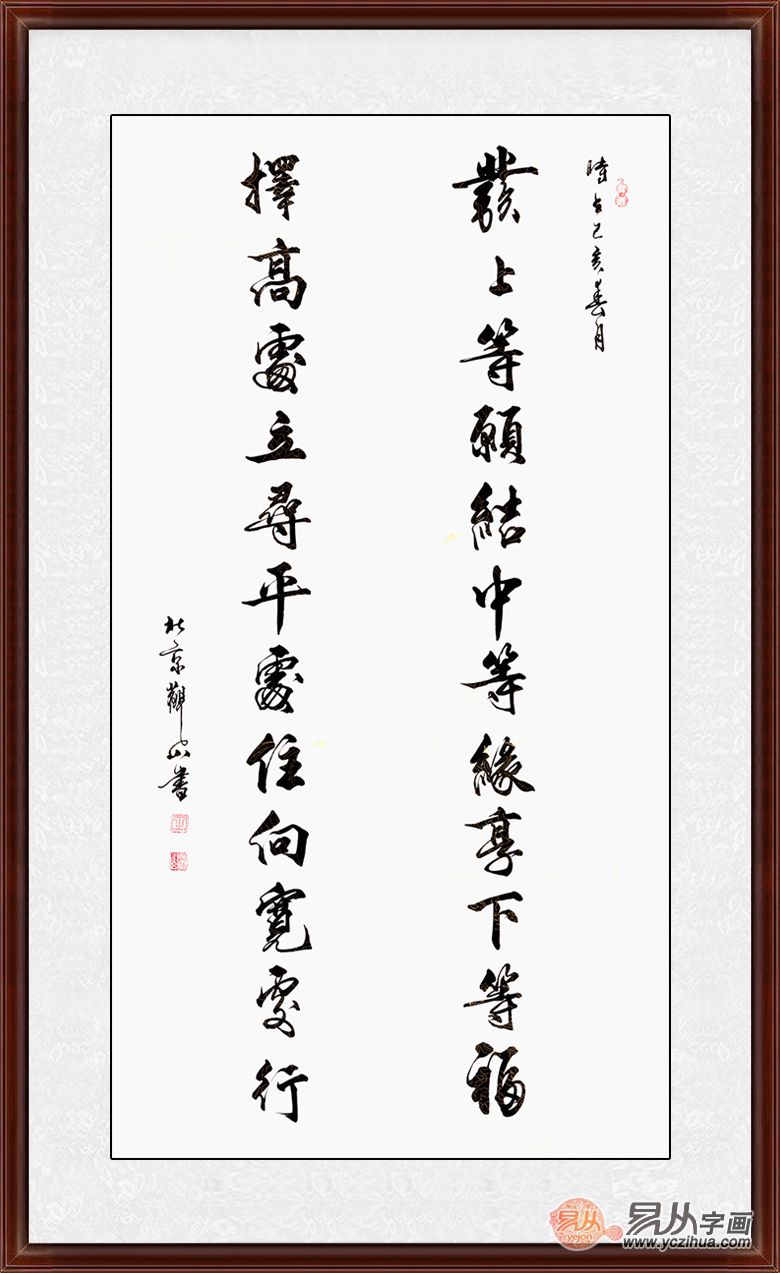 時在己亥春月
發上等願結中等緣享下等福
擇高處立尋平處住向寬處行
北京觀山書
易从
yicon
易从字画
www.yczihua.com